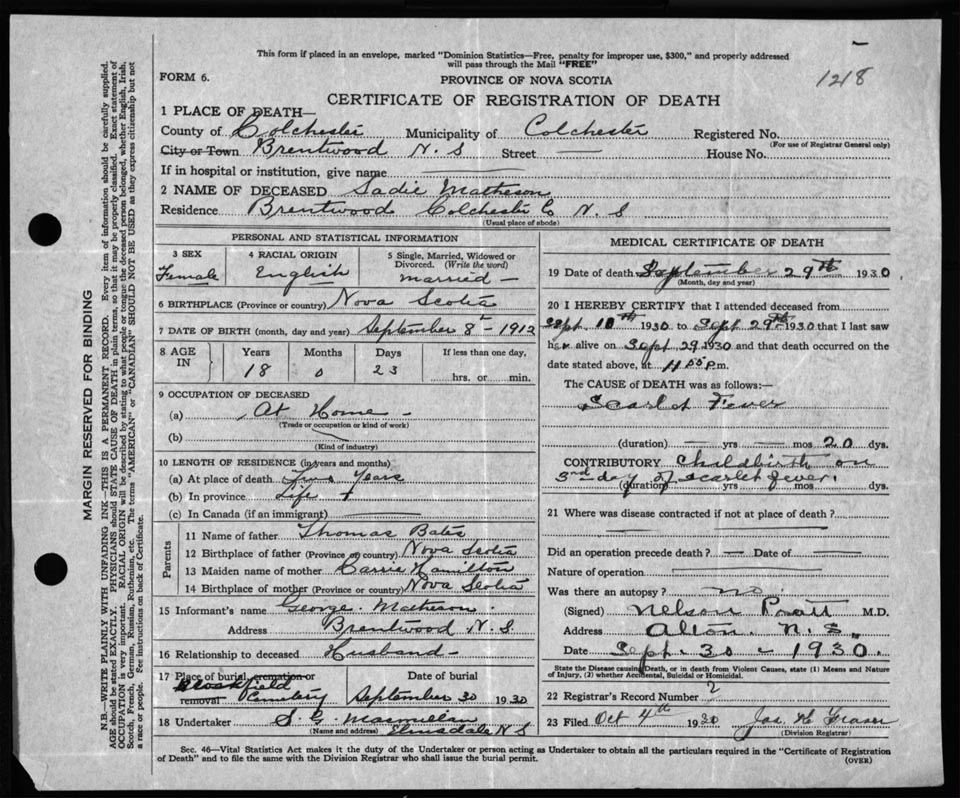 1218
This form if placed in an envelope, marked "Dominion Statistics—Free, penalty for improper use, $300," and properly addressed
will pass through the Mail "FREE"
FORM 6.
PROVINCE OF NOVA SCOTIA
CERTIFICATE OF REGISTRATION OF DEATH
1 PLACE OF DEATH—
County of Colchester Municipality of Colchester Registered No.
(For use of Registrar General only)
City or Town Brentwood N. S Street — House No.
If in hospital or institution, give name
2 NAME OF DECEASED Sadie Matheson
Residence Brentwood Colchester Co N. S
(Usual place of abode)
PERSONAL AND STATISTICAL INFORMATION
3 SEX 4 RACIAL ORIGIN 5 Single, Married, Widowed or
Divorced. (Write the word)
Female English married —
6 BIRTHPLACE (Province or country) Nova Scotia
7 DATE OF BIRTH (month, day and year) September 8th - 1912
8 AGE IN Years Months Days If less than one day,
18 0 23 hrs. or min.
9 OCCUPATION OF DECEASED
(a) At Home -
(Trade or occupation or kind of work)
(b)
(Kind of industry)
10 LENGTH OF RESIDENCE (in years and months)
(a) At place of death Years
(b) In province Life
(c) In Canada (if an immigrant)
Parents
11 Name of father Thomas Bates
12 Birthplace of father (Province or country) Nova Scotia
13 Maiden name of mother Carrie Hamilton
14 Birthplace of mother (Province or country) Nova Scotia
15 Informant's name George Matheson
Address Brentwood N. S.
16 Relationship to deceased Husband —
17 Place of burial, cremation or Date of burial
removal Brookfield Cemetery September 30 1930
18 Undertaker S. G. Macmillan
(Name and address) Elmsdale N S
MEDICAL CERTIFICATE OF DEATH
19 Date of death September 29th 1930
(Month, day and year)
20 I HEREBY CERTIFY that I attended deceased from
Sept. 10th 1930 to Sept 29th 1930 that I last saw
her alive on Sept 29 1930 and that death occurred on the
date stated above, at 11 55 P.m.
The CAUSE OF DEATH was as follows:—
Scarlet Fever
(duration) — yrs — mos 20 dys.
CONTRIBUTORY Childbirth on
3rd day of Scarlet fever.
(duration) yrs mos dys.
21 Where was disease contracted if not at place of death?
Did an operation precede death? — Date of —
Nature of operation
Was there an autopsy? no
(Signed) Nelson Pratt M.D.
Address Alton. N. S.
Date Sept. 30 - 1930.
State the Disease causing Death, or in death from Violent Causes, state (1) Means and Nature
of Injury, (2) whether Accidental, Suicidal or Homicidal.
22 Registrar's Record Number 2
23 Filed Oct 4th 1930 Jas. Fraser
(Division Registrar)
Sec. 46—Vital Statistics Act makes it the duty of the Undertaker or person acting as Undertaker to obtain all the particulars required in the "Certificate of Registration
of Death" and to file the same with the Division Registrar who shall issue the burial permit.
(OVER)
MARGIN RESERVED FOR BINDING
N.B.—WRITE PLAINLY WITH UNFADING INK—THIS IS A PERMANENT RECORD. Every item of information should be carefully supplied.
AGE should be stated EXACTLY. PHYSICIANS should STATE CAUSE OF DEATH in plain terms, so that it may be properly classified. Exact statement of
OCCUPATION is very important. RACIAL ORIGIN will be described by stating to what people or tongue the deceased person belonged, whether English, Irish,
Scotch, French, German, Russian, Ruthenian, etc. The terms "AMERICAN" or "CANADIAN" SHOULD NOT BE USED as they express citizenship but not
a race or people. See instructions on back of Certificate.